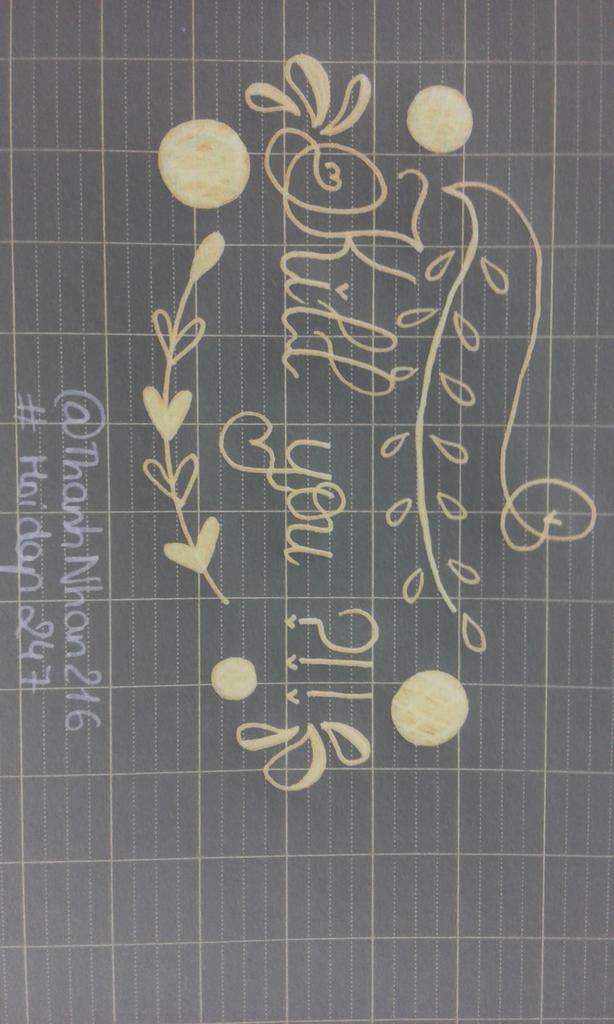 Kill you ?!!
@ThanhNhan216
# Haidap247